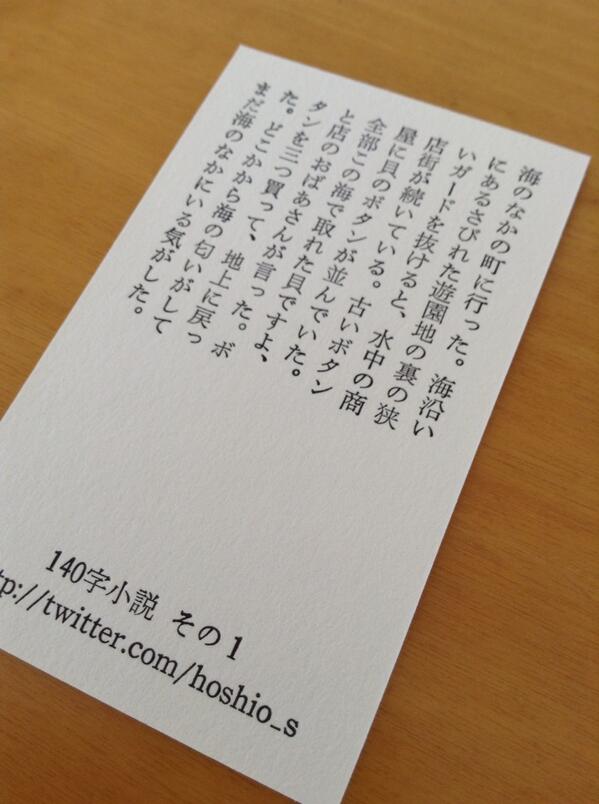 海のなかの町に行った。海沿い
にあるさびれた遊園地の裏の狭
いガードを抜けると、水中の商
店街が続いている。古いボタン
屋に貝のボタンが並んでいた。
全部この海で取れた貝ですよ、
と店のおばあさんが言った。ボ
タンを三つ買って、地上に戻っ
た。どこかから海の匂いがして
まだ海のなかにいる気がした。
140字小説 その1
tp://twitter.com/hoshio_s